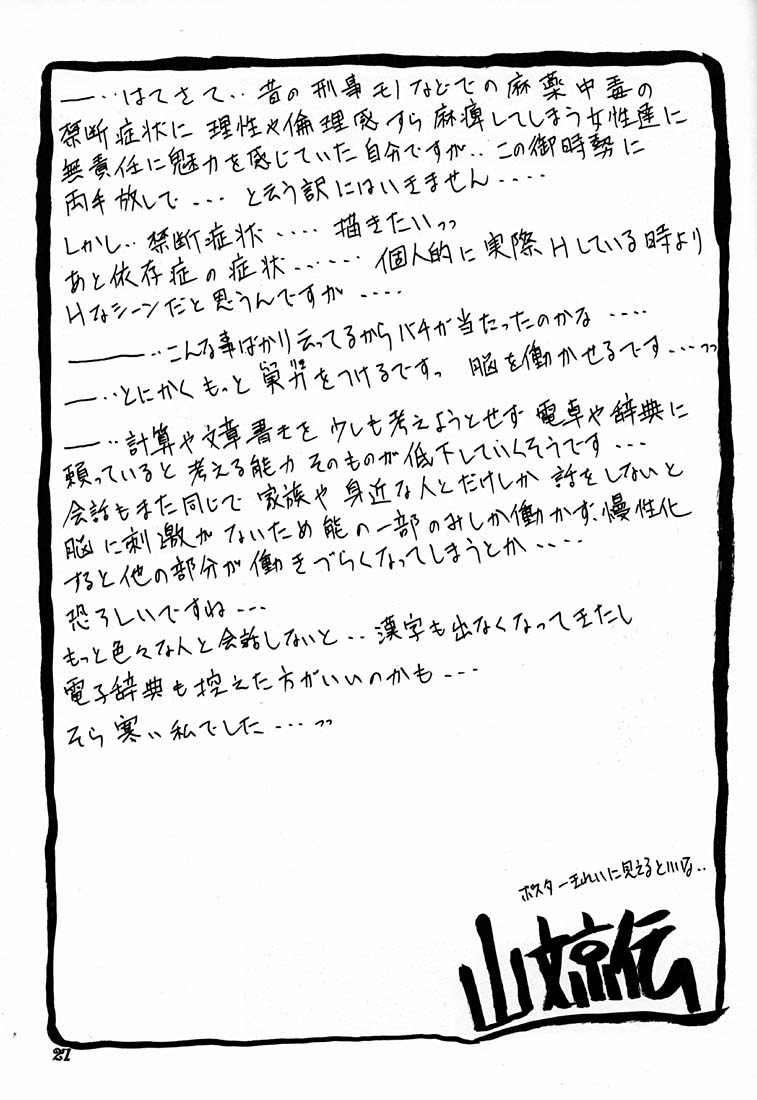 ー‥はてさて‥昔の刑事モノなどでの麻薬中毒の
禁断症状に理性や倫理感すら麻痺してしまう女性達に
無責任に魅力を感じていた自分ですが‥この御時勢に
両手放しで・・・と云う訳にはいきません・・・・
しかし‥禁断症状・・・・描きたいっっ
あと依存症の症状・・・・・・個人的に実際Hしている時より
Hなシーンだと思うんですが・・・・
――‥こんな事ばかり云ってるからバチが当たったのかな・・・・
ー‥とにかくもっと をつけるですっ 脳を働かせるです・・・っっ
ー‥計算や文章書きを少しも考えようとせず電卓や辞典に
頼っていると考える能力そのものが低下していくそうです・・・
会話もまた同じで家族や身近な人とだけしか話をしないと
脳に刺激がないため能の一部のみしか働かず、慢性化
すると他の部分が働きづらくなってしまうとか・・・・
恐ろしいですね・・・
もっと色々な人と会話しないと‥漢字も出なくなってきたし
電子辞典も控えた方がいいのかも・・・
そら寒い私でした・・・っっ
ポスターきれいに見えるといいな‥
山文京伝
27